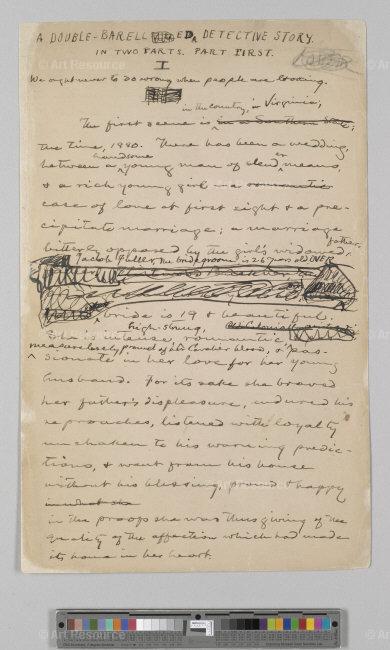 A DOUBLE-BARELLED DETECTIVE STORY.
IN TWO PARTS. PART FIRST.
I
We ought never to do wrong when people are looking.
in the country, in Virginia;
The first scene is in a Southern State;
the time, 1880. There has been a wedding,
between a handsome young man of slender means,
& a rich young girl in a romantic
case of love at first sight & a pre-
cipitate marriage; a marriage
bitterly opposed by the girl's widowed father.
Jacob Fuller, the bridegroom, is 26 years old, OVER
bride is 19 & beautiful.
She is intense, high-strung, romantic,
immeasurably proud of her Cavalier blood, & pas-
sionate in her love for her young
husband. For its sake she braved
her father's displeasure, endured his
reproaches, listened with loyalty
unshaken to his warning predic-
tions, & went from his house
without his blessing, proud & happy
in what she
in the proofs she was thus giving of the
quality of the affection which had made
its home in her heart.
Art Resource